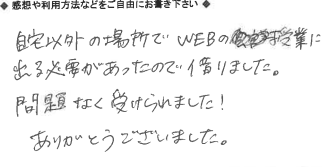 ◆ 感想や利用方法などをご自由にお書き下さい ◆
自宅以外の場所でWEBの授業に
出る必要があったので借りました。
問題なく受けられました！
ありがとうございました。